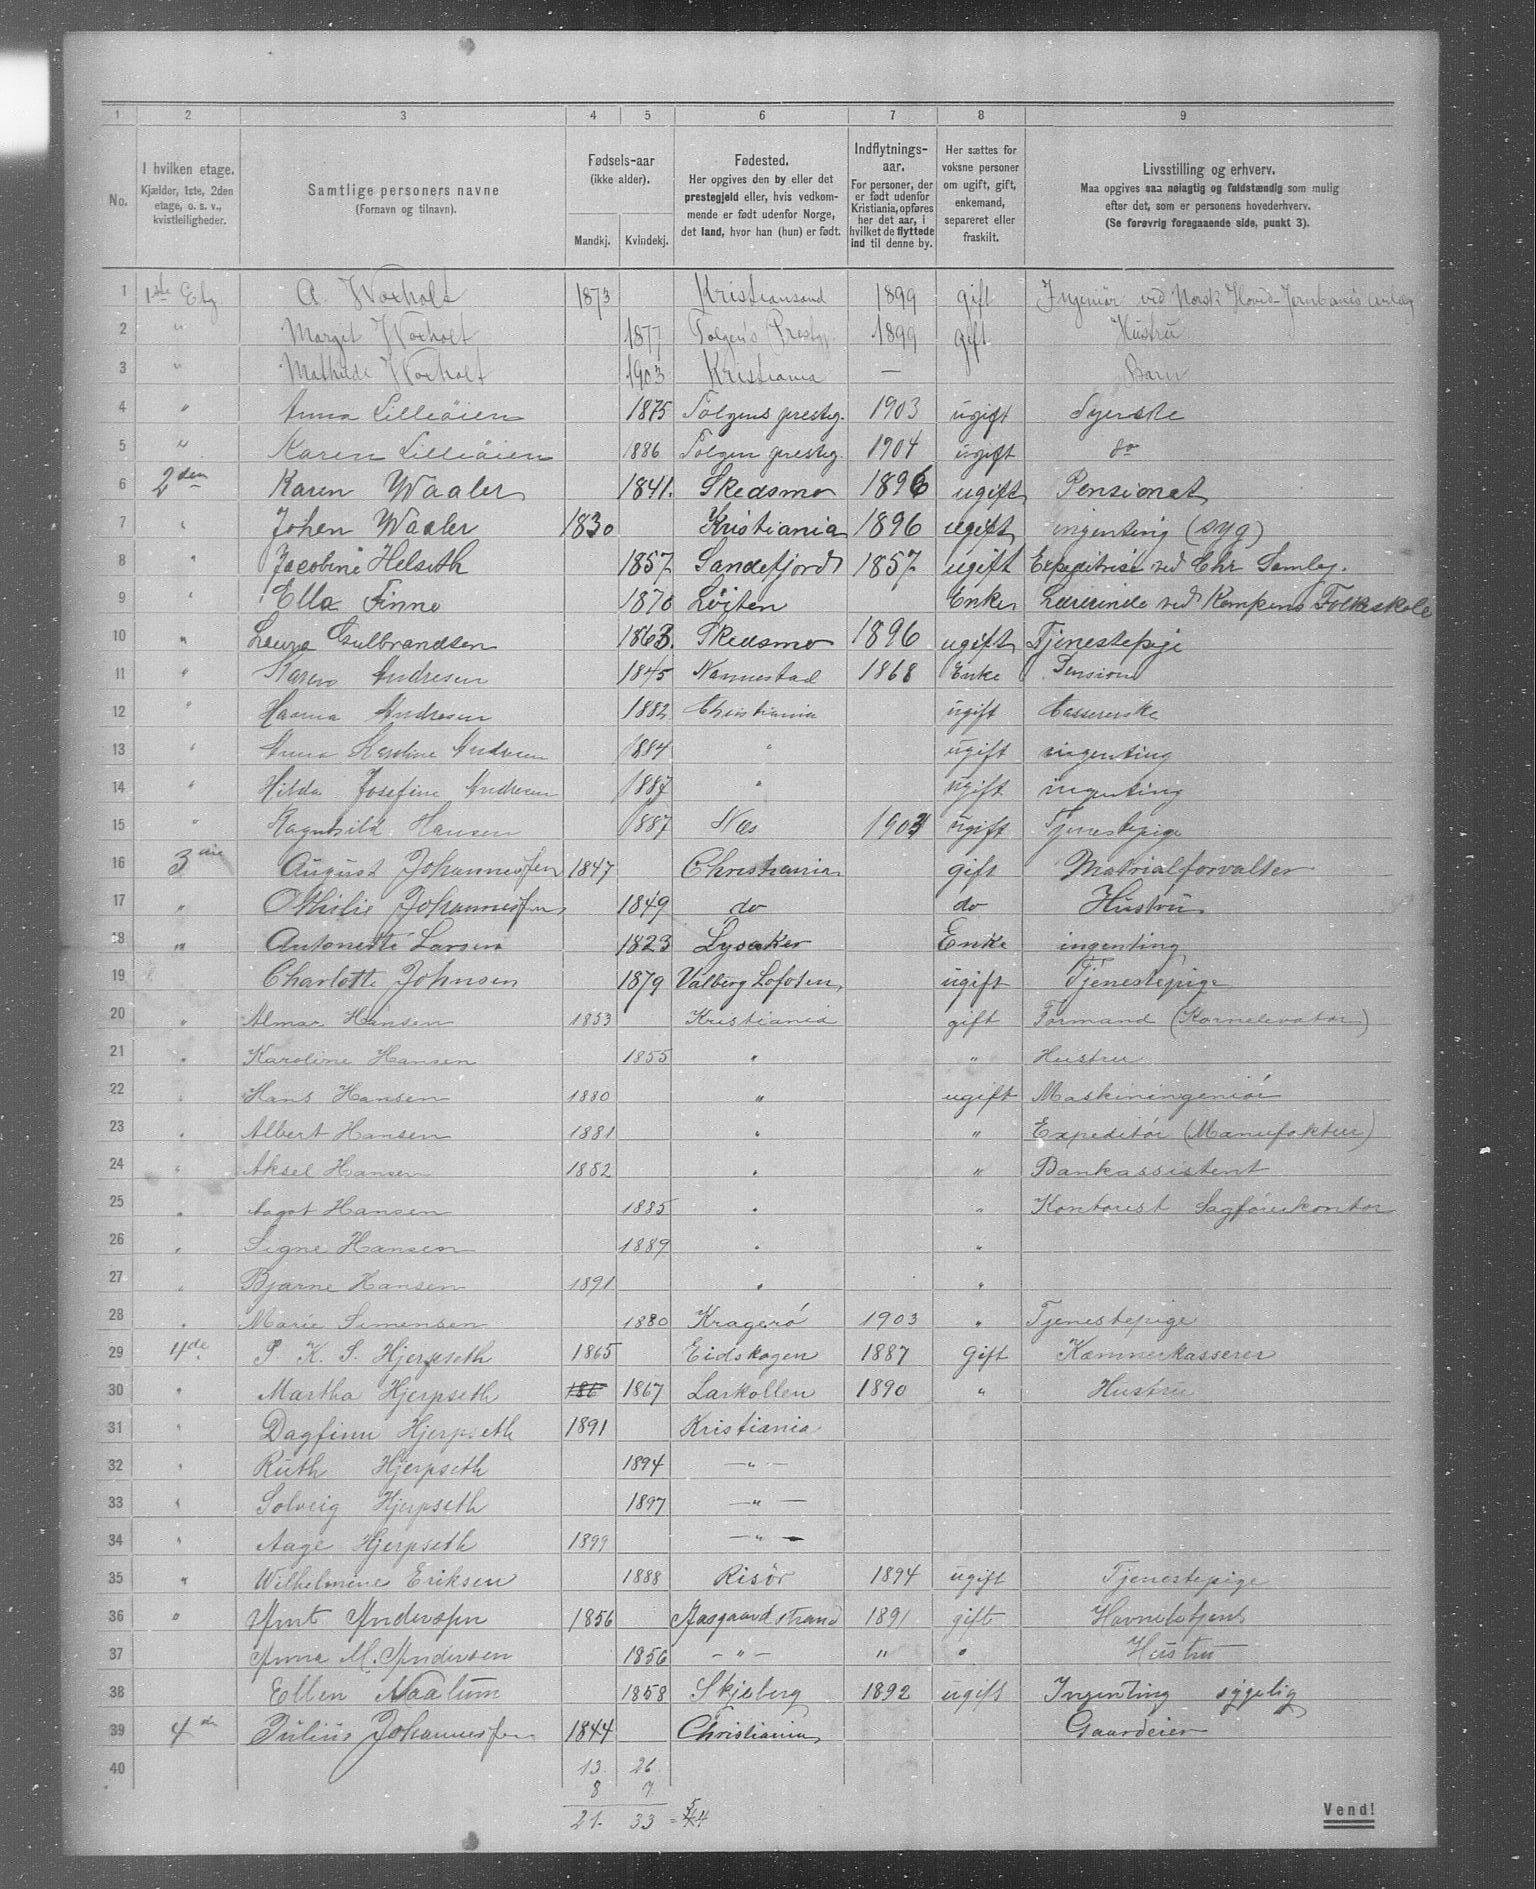 1 2 3 4 5 6 7 8 9
No.
I hvilken etage. Kjælder, 1ste, 2den etage, o. s. v., kvistleiligheder.
Samtlige personers navne (Fornavn og tilnavn).
Fødsels-aar (ikke alder). Mandkj. Kvindekj.
Fødested. Her opgives den by eller det prestegjeld eller, hvis vedkommende er født udenfor Norge, det land, hvor han (hun) er født.
Indflytnings-aar. For personer, der er født udenfor Kristiania, opføres her det aar, i hvilket de flyttede ind til denne by.
Her sættes for voksne personer om ugift, gift, enkemand, separeret eller fraskilt.
Livsstilling og erhverv. Maa opgives saa nøiagtig og fuldstændig som mulig efter det, som er personens hovederhverv. (Se forøvrig foregaaende side, punkt 3).
1 1ste Etg. A. Woxholt 1873 Kristiansand 1899 gift Ingeniør ved Norsk Hoved-Jernbanes Anlæg
2 " Margit Woxholt 1877 Tolgen's Prestg. 1899 gift Hustru
3 " Mathilde Woxholt 1903 Kristiania — Barn
4 " Anna Lilleøien 1875 Tolgens presteg. 1903 ugift Syerske
5 " Karen Lilleøien 1886 Tolgen presteg. 1904 ugift do
6 2den Karen Waaler 1841. Skedsmo 1896 ugift Pensionat
7 " Johan Waaler 1830 Kristiania 1896 ugift ingenting (syg)
8 " Jacobine Helseth 1857 Sandefjord 1857 ugift Expeditrise ved Chr Samlag.
9 " Ella Finne 1870 Løiten Enke Lærerinde ved Kampens Folkeskole
10 " Laura Gulbrandsen 1863. Skedsmo 1896 ugift Tjenestepige
11 " Karen Andresen 1845 Nannestad 1868 Enke Pension
12 " Hanna Andresen 1882 Christiania ugift Cassererske
13 " Anna Karoline Andresen 1884 " ugift ingenting
14 " Hilda Josefine Andresen 1887 " ugift ingenting
15 " Ragnhild Hansen 1887 Næs 1903 ugift Tjenestepige
16 3die August Johannessen 1847 Christiania gift Matrialforvalter
17 " Othilie Johannessen 1849 do do Hustru
18 " Antonette Larsen 1823 Lysaker Enke ingenting
19 Charlotte Johnsen 1879 Valberg Lofoten ugift Tjenestepige
20 " Almar Hansen 1853 Kristiania gift Formand (Kornelevator)
21 " Karoline Hansen 1855 " " Hustru
22 " Hans Hansen 1880 " ugift Maskiningeniør
23 " Albert Hansen 1881 " " Expeditør (Manufaktur)
24 " Aksel Hansen 1882 " " Bankassistent
25 " Aagot Hansen 1885 " " Kontorist Sagførerkontor
26 " Signe Hansen 1889 " "
27 " Bjarne Hansen 1891 " "
28 " Marie Simensen 1880 Kragerø 1903 " Tjenestepige
29 4de P. K. S. Hjerpseth 1865 Eidskogen 1887 Gift Kæmnerkasserer
30 " Martha Hjerpseth 186 1867 Larkollen 1890 " Hustru
31 " Dagfinn Hjerpseth 1891 Kristiania
32 " Ruth Hjerpseth 1894 — " —
33 " Solveig Hjerpseth 1897 — " —
34 " Aage Hjerpseth 1899 — " —
35 " Wilhelmine Eriksen 1888 Risør 1894 ugift Tjenestepige
36 " Arnt Andersen 1856 Aasgaardstrand 1891 gift Havnebetjent
37 Anna M. Andersen 1856 — " — " " Hustru
38 Ellen Naalum 1858 Skjeberg 1892 ugift Ingenting sygelig
39 4de Julius Johannessen 1844 Christiania Gaardeier
40 13 26
8 7
21. 33 = 54
Vend!